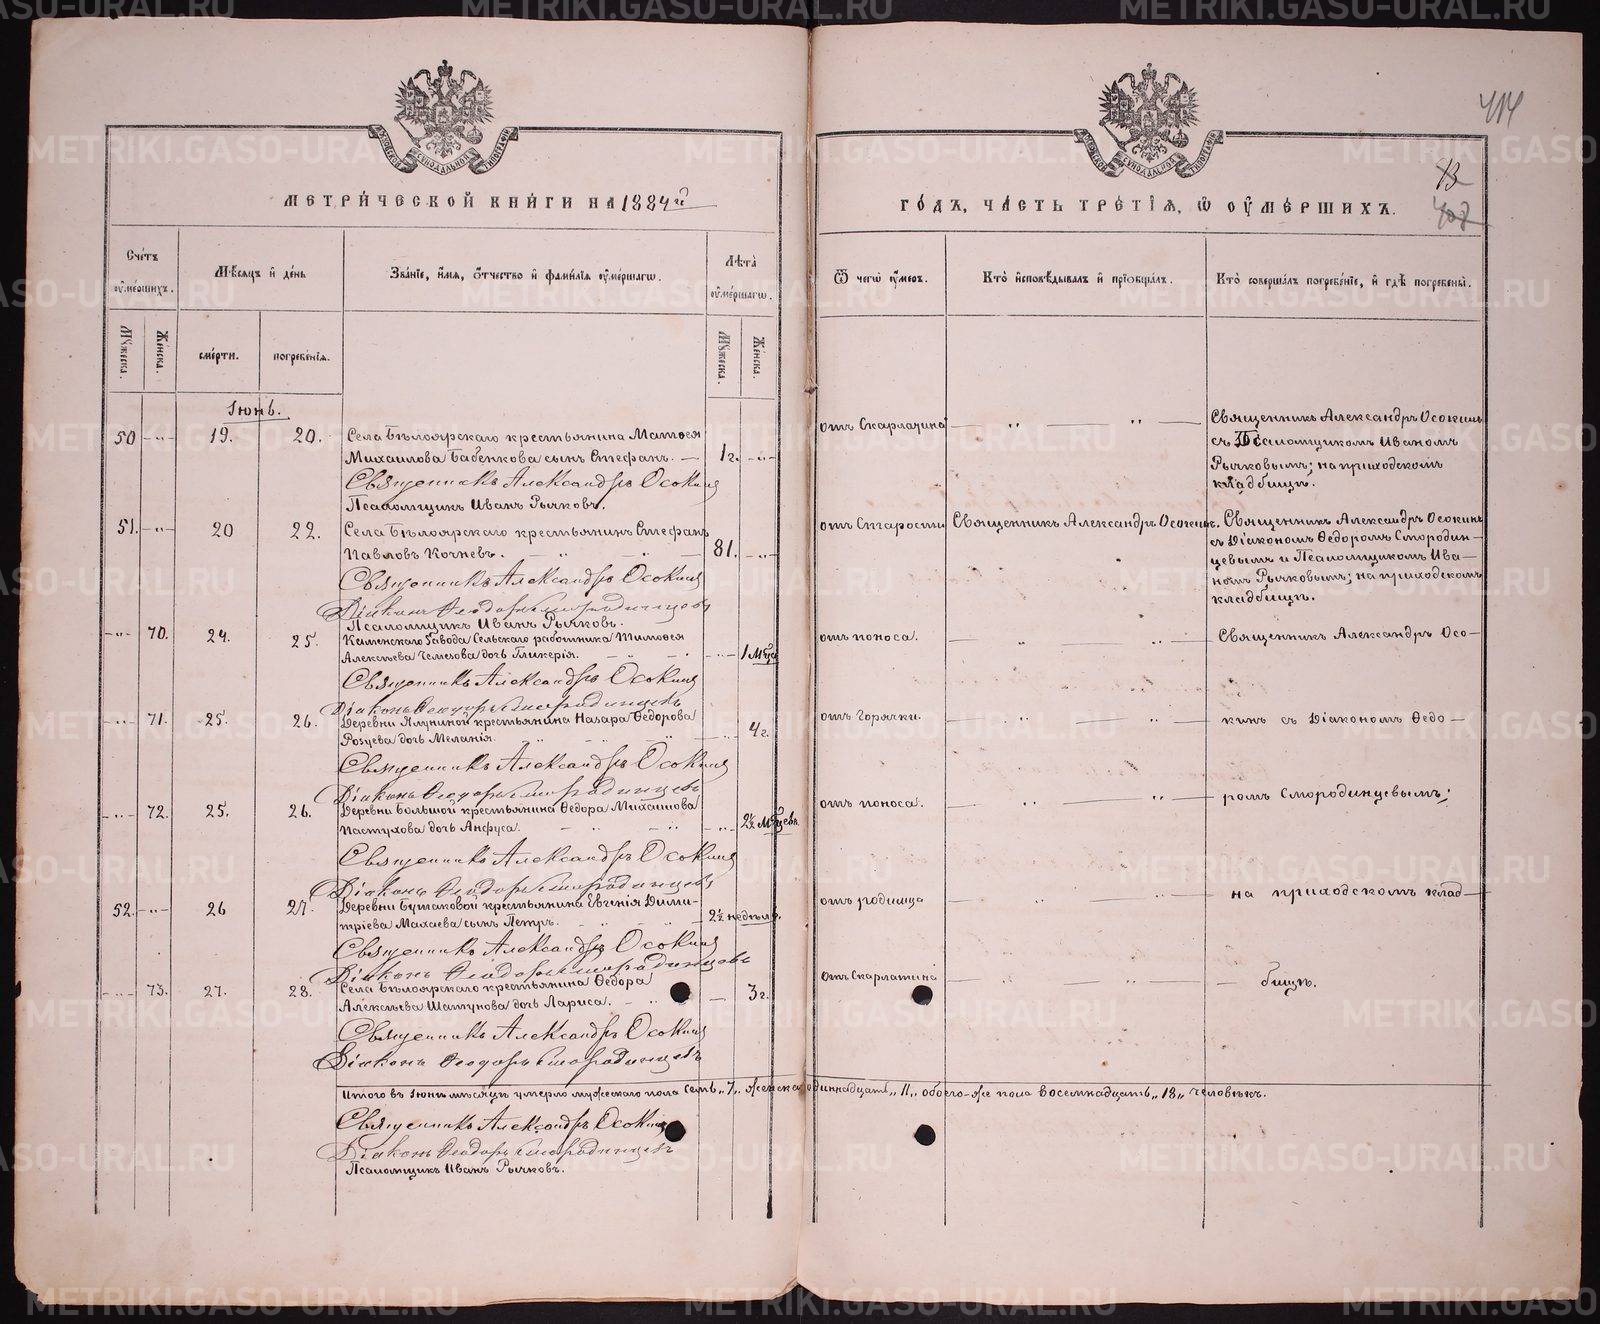 METRIKI.GASO-URAL.RU
МОСКОВСКОЙ СѴНОДАЛЬНОЙ ТИПОГРАФІИ
МЕТРИЧЕСКОЙ КНИГИ НА 1884й
Счетъ ѹмершихъ.
Мѣсяцъ и день
Званіе, имя, отчество и фамилія ѹмершагѡ.
Лѣта ѹмершагѡ.
Мѹжеска.
Женска.
смерти.
погребенія.
Мѹжеска.
Женска.
Іюнь.
50 -„- 19. 20. Села Бѣлоярскаго крестьянина Матѳея
Михаилова Бабенкова сынъ Стефанъ. — 1 г. -„-
Священникъ Александръ Осокинъ
Псаломщикъ Иванъ Рычковъ.
51. -„- 20 22. Села Бѣлоярскаго крестьянинъ Стефанъ
Павловъ Кочневъ. — „ — „ — 81. -„-
Священникъ Александръ Осокинъ
Діаконъ Ѳеодоръ Смородинцевъ
Псаломщикъ Иванъ Рычковъ.
-„- 70. 24. 25. Каменскаго Завода Сельскаго работника Тимоѳея
Алексѣева Чемезова дочь Гликерія. -„- 1 мѣся
Священникъ Александръ Осокинъ
Діаконъ Ѳеодоръ Смородинцевъ
-„- 71. 25. 26. Деревни Ялуниной крестьянина Назара Ѳедорова
дочь Меланія. -„- 4 г.
Священникъ Александръ Осокинъ
Діаконъ Ѳеодоръ Смородинцевъ
-„- 72. 25. 26. Деревни Большой крестьянина Ѳедора Михаилова
Пастухова дочь Анфуса. -„- 2½ мѣсяцевъ.
Священникъ Александръ Осокинъ
Діаконъ Ѳеодоръ Смородинцевъ
52. -„- 26 27. Деревни Бутаковой крестьянина Евгенія Дими-
тріева Махаева сынъ Петръ. 2½ недѣли.
Священникъ Александръ Осокинъ
Діаконъ Ѳеодоръ Смородинцевъ
-„- 73. 27. 28. Села Бѣлоярскаго крестьянина Ѳедора
Алексѣева Шатунова дочь Лариса. — 3 г.
Священникъ Александръ Осокинъ
Діаконъ Ѳеодоръ Смородинцевъ
Итого въ Іюнѣ мѣсяцѣ умерло мужескаго пола семь „7„ женска одиннадцать „11„ обоего-же пола восемнадцать „18„ человѣкъ.
Священникъ Александръ Осокинъ
Діаконъ Ѳеодоръ Смородинцевъ
Псаломщикъ Иванъ Рычковъ.
414
13
МОСКОВСКОЙ СѴНОДАЛЬНОЙ ТИПОГРАФІИ
ГОДЪ, ЧАСТЬ ТРЕТІЯ, Ѡ ОУМЕРШИХЪ.
Ѿ чегѡ ѹмеръ.
Кто исповѣдывалъ и пріобщалъ.
Кто совершалъ погребеніе, и гдѣ погребены.
отъ Скарлатины — „ — „ — Священникъ Александръ Осокинъ
съ Псаломщикомъ Иваномъ
Рычковымъ; на приходскомъ
кладбищѣ.
отъ Старости Священникъ Александръ Осокинъ. Священникъ Александръ Осокинъ
съ Діакономъ Ѳедоромъ Смородин-
цевымъ и Псаломщикомъ Ива-
номъ Рычковымъ; на приходскомъ
кладбищѣ.
отъ поноса. — „ — „ — Священникъ Александръ Осо-
отъ Горячки. „ — „ — кинъ съ Діакономъ Ѳедо-
отъ поноса. — „ — „ — ромъ Смородинцевымъ;
отъ родимца — „ — „ — на приходскомъ клад-
отъ Скарлатины „ — „ — бищѣ.